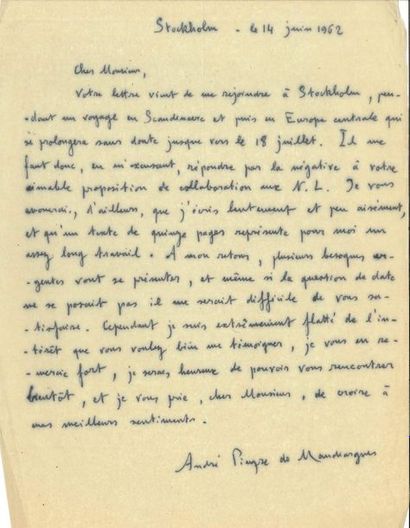 Stockholm - le 14 juin 1962
Cher Monsieur,
Votre lettre vient de me rejoindre à Stockholm, pen-
dant un voyage en Scandinavie et puis en Europe centrale qui
se prolongera sans doute jusque vers le 18 juillet. Il me
faut donc, en m'excusant, répondre par la négative à votre
aimable proposition de collaboration aux N.L. Je vous
avouerai, d'ailleurs, que j'écris lentement et peu aisément,
et qu'un texte de quinze pages représente pour moi un
assez long travail. A mon retour, plusieurs besognes ur-
gentes vont se présenter, et même si la question de date
ne se posait pas il me serait difficile de vous sa-
tisfaire. Cependant je suis extrêmement flatté de l'in-
térêt que vous voulez bien me témoigner, je vous en re-
mercie fort, je serai heureux de pouvoir vous rencontrer
bientôt, et je vous prie, cher Monsieur, de croire à
mes meilleurs sentiments.
André Pieyre de Mandiargues